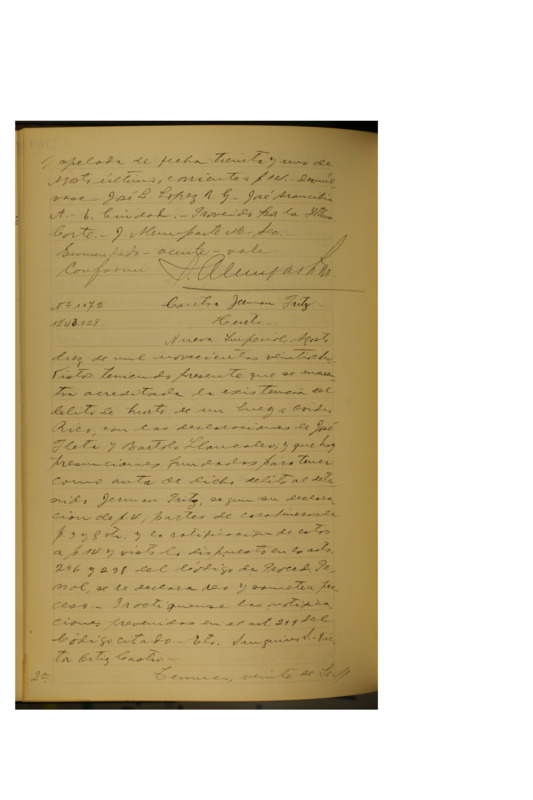 apelada de fecha treinta y uno de
Agosto último, corriente a f 14. Devuél
vase. José D. Lopez R. G. José
A. - L. Ciudad. - Proveído por la Iltma
Corte. - J. Alemparte M. Sec.
Enmendado - veinte - vale
Conforme
No 1079 Contra Jerman Fritz
Hurto.
Nueva Imperial Agosto
diez de mil novecientos veintiocho
Vistos: teniendo presente que se encuen
tra acreditada la existencia del
delito de hurto de un buey a
Rico, con las declaraciones de José
Flota y Bartolo Llancaleo, y que hay
presunciones fundadas para tener
como autor de dicho delito al dete
nido Jerman Fritz, segun su declara
cion de f. 4, partes de carabineros de
f 3 y 8 vta. y la ratificacion de estos
a f 14 y visto lo dispuesto en los arts.
276 y 298 del Código de Proced. Pe
nal, se le declara reo y sometera pro
ceso. - Practíquense las notifica
ciones prevenidas en el art. 299 del
Código citado - Eto. Sanguino S. - Víc
tor Ortiz Castro -
2o Temuco, veinte de